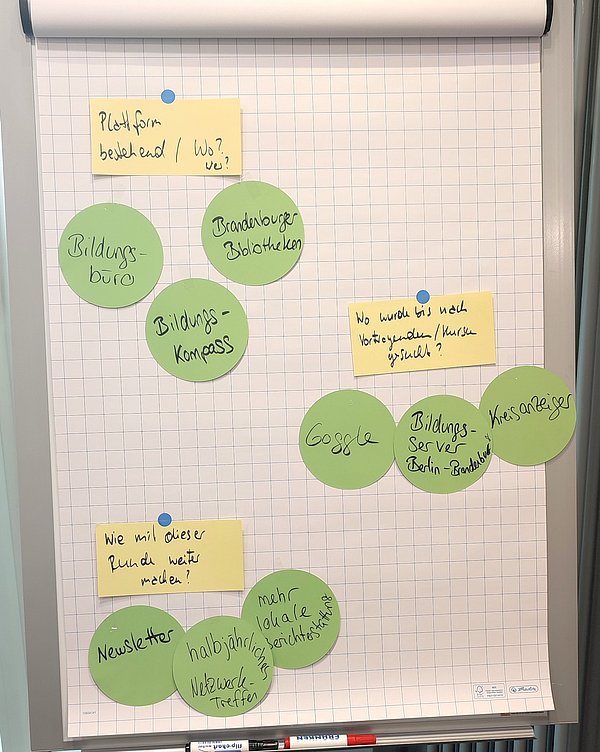 Plattform
bestehend / Wo?
wer?
Bildungs-
büro
Brandenburger
Bibliotheken
Bildungs-
Kompass
Wo wurde bis nach
Vortragenden / Kursen
gesucht?
Goggle
Bildungs-
server
Berlin-Brandenburg
Kreisanzeiger
Wie mit dieser
Runde weiter
machen?
Newsletter
halbjährliches
Netzwerk-
treffen
mehr
lokale
Berichterstattung
FSC
flipchart
FRANKEN